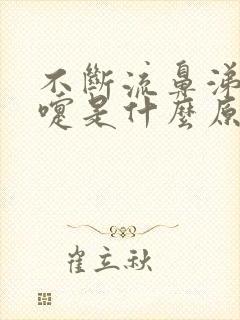 不斷流鼻涕
嚏是什麼原
崔立秋